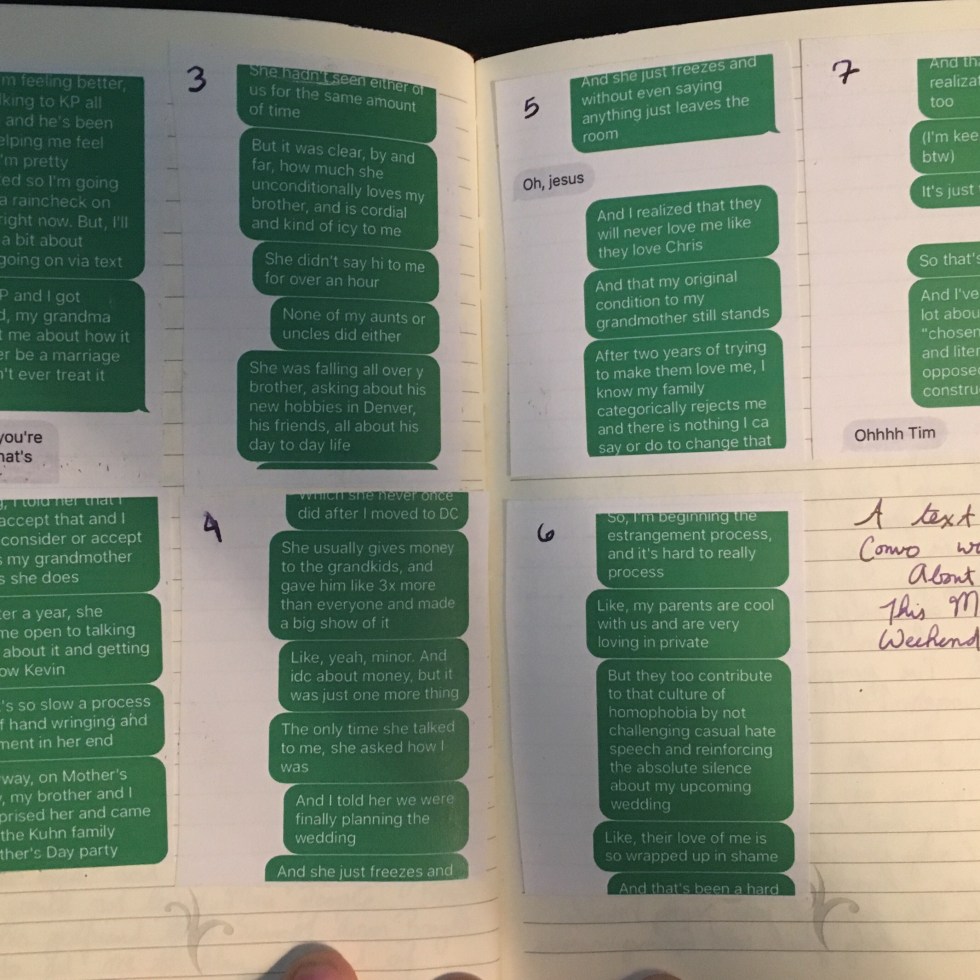 m feeling better,
lking to KP all
and he's been
elping me feel
'm pretty
ed so I'm going
a raincheck on
right now. But, I'll
a bit about
going on via text
P and I got
d, my grandma
t me about how it
er be a marriage
n't ever treat it
you're
hat's
g, I told her that I
accept that and I
consider or accept
s my grandmother
s she does
ter a year, she
me open to talking
about it and getting
ow Kevin
's so slow a process
f hand wringing and
ment in her end
way, on Mother's
, my brother and I
prised her and came
the Kuhn family
ther's Day party
3
She hadn't seen either of
us for the same amount
of time
But it was clear, by and
far, how much she
unconditionally loves my
brother, and is cordial
and kind of icy to me
She didn't say hi to me
for over an hour
None of my aunts or
uncles did either
She was falling all over y
brother, asking about his
new hobbies in Denver,
his friends, all about his
day to day life
4
Which she never once
did after I moved to DC
She usually gives money
to the grandkids, and
gave him like 3x more
than everyone and made
a big show of it
Like, yeah, minor. And
idc about money, but it
was just one more thing
The only time she talked
to me, she asked how I
was
And I told her we were
finally planning the
wedding
And she just freezes and
5
And she just freezes and
without even saying
anything just leaves the
room
Oh, jesus
And I realized that they
will never love me like
they love Chris
And that my original
condition to my
grandmother still stands
After two years of trying
to make them love me, I
know my family
categorically rejects me
and there is nothing I ca
say or do to change that
6
So, I'm beginning the
estrangement process,
and it's hard to really
process
Like, my parents are cool
with us and are very
loving in private
But they too contribute
to that culture of
homophobia by not
challenging casual hate
speech and reinforcing
the absolute silence
about my upcoming
wedding
Like, their love of me is
so wrapped up in shame
And that's been a hard
7
And th
realizat
too
(I'm kee
btw)
It's just
So that's
And I've
lot abou
"chosen
and liter
opposed
constru
Ohhhh Tim
A text
Convo w
About
This M
Weekend